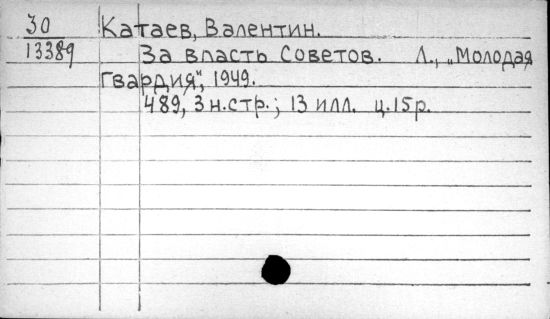 30 Катаев, Валентин.
13389 За власть Советов. Л., „Молодая
Гвардия", 1949.
489, 3 н.стр.; 13 илл. ц.15р.